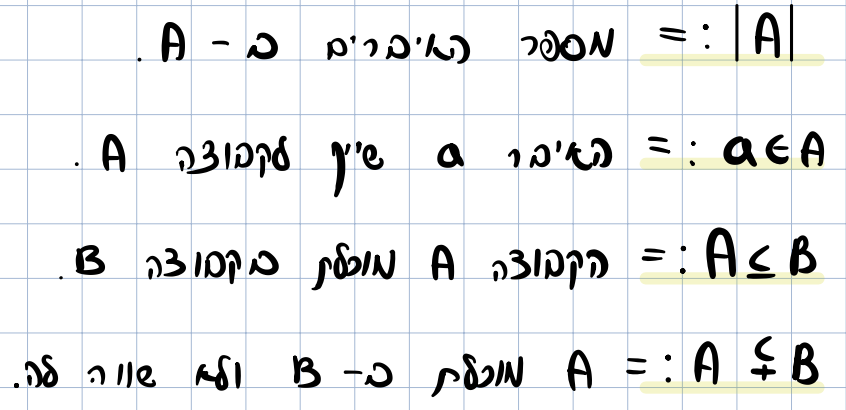 |A| := מספר האיברים ב - A.
a ∈ A := האיבר a שייך לקבוצה A.
A ⊆ B := הקבוצה A מוכלת בקבוצה B.
A ⊊ B := A מוכלת ב- B ולא שווה לה.